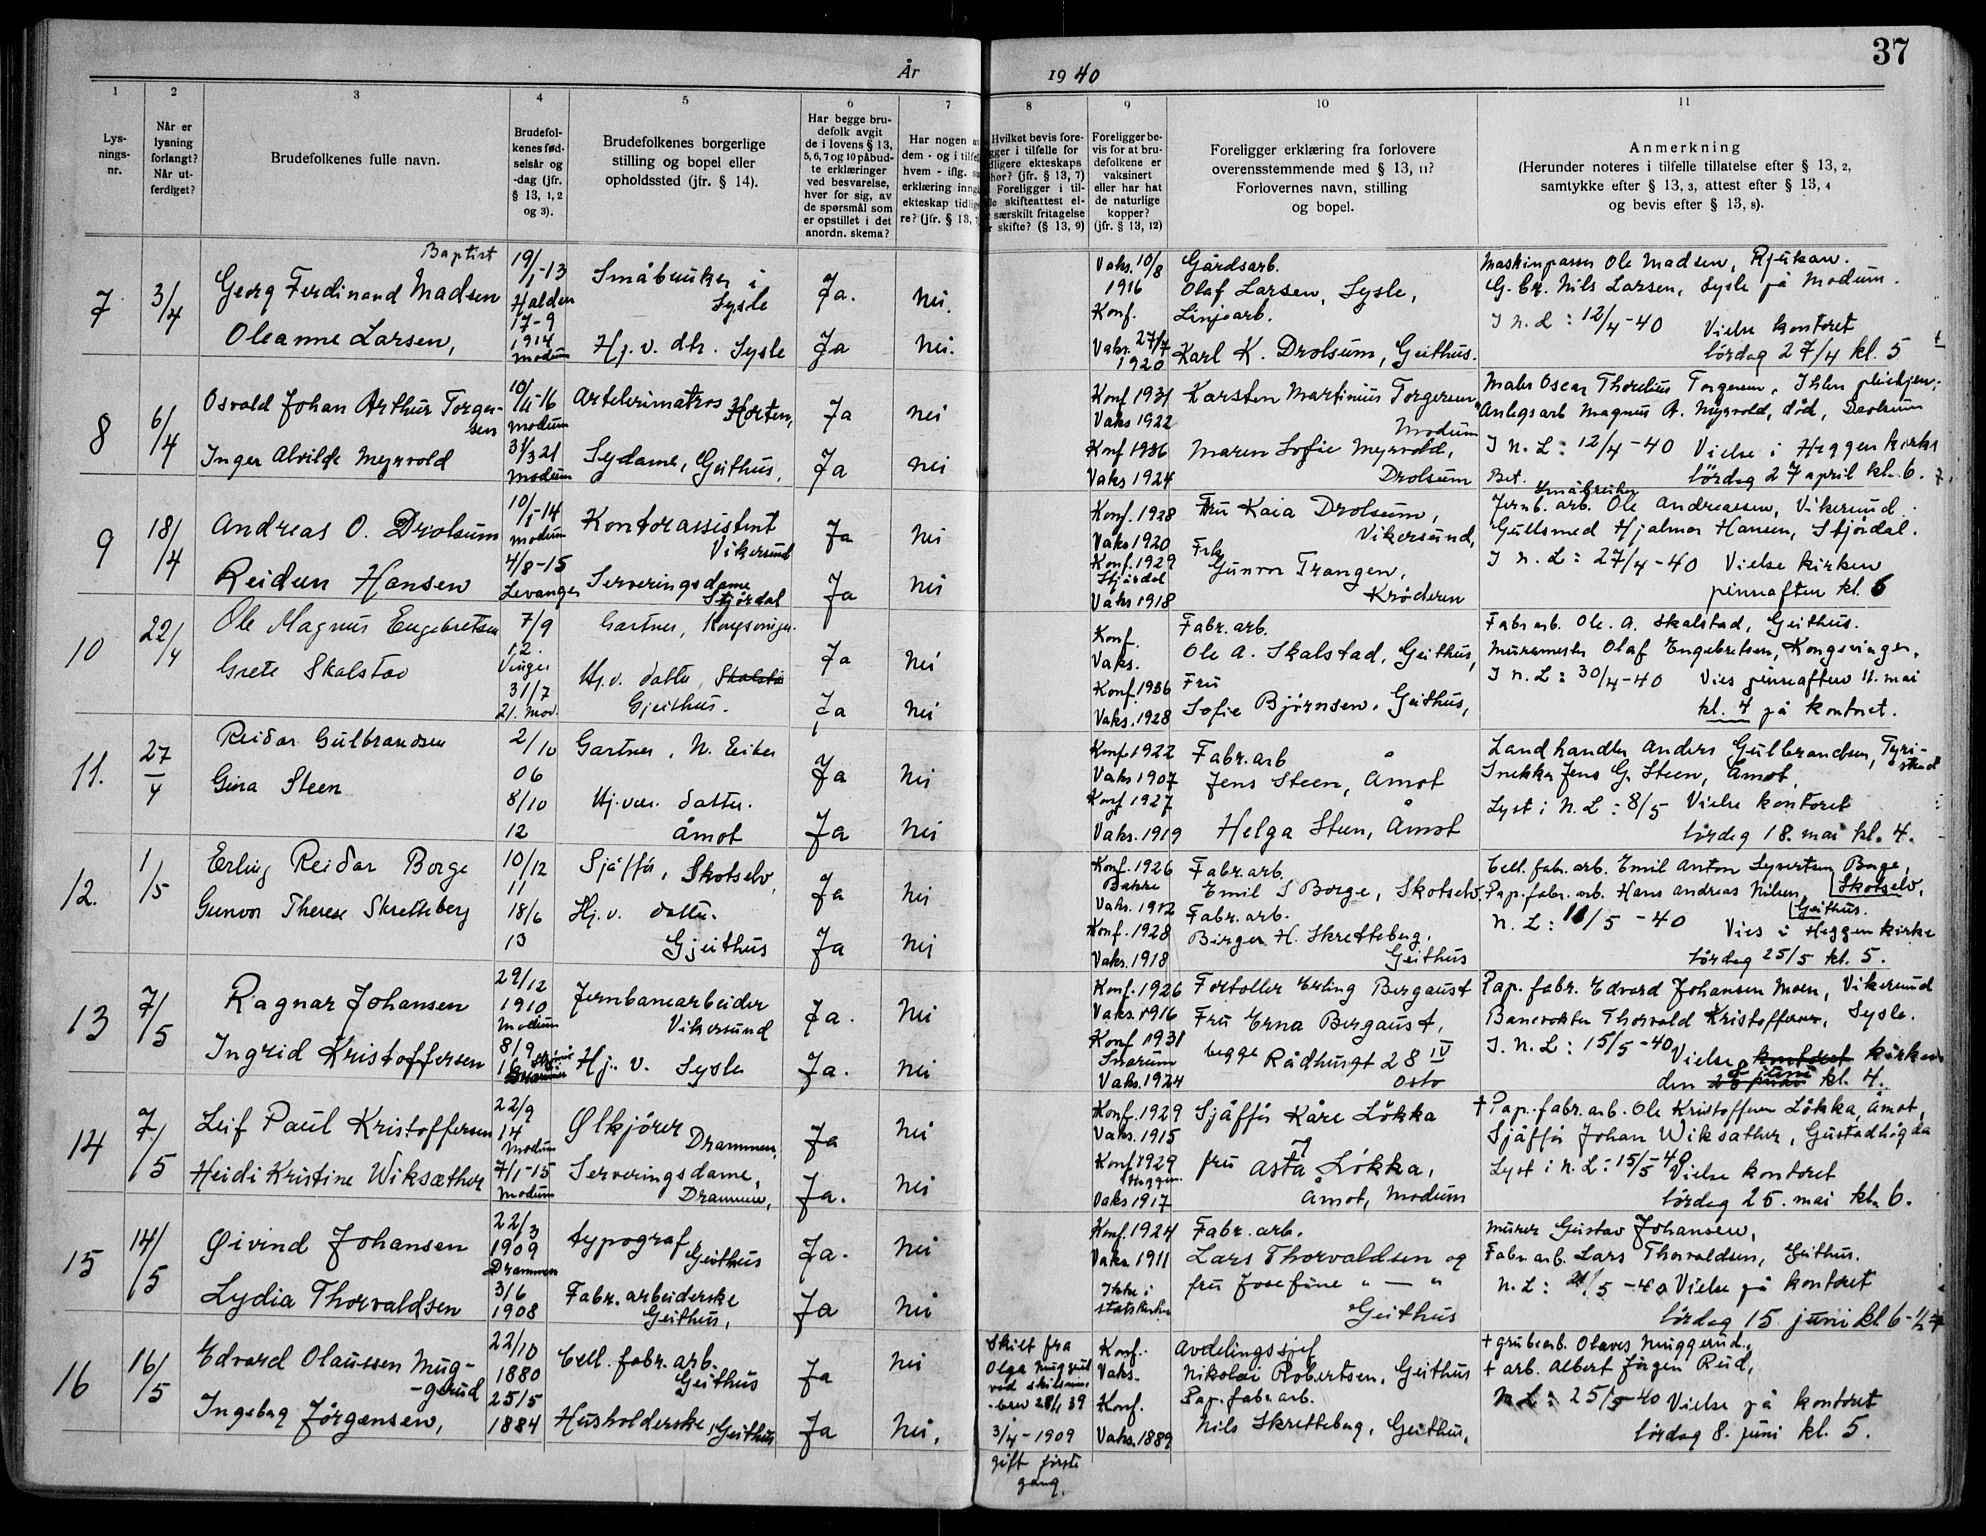 37
År 1940
1 2 3 4 5 6 7 8 9 10 11
Lys-
nings-
nr.
Når er
lysning
forlangt?
Når ut-
ferdiget?
Brudefolkenes fulle navn.
Brudefol-
kenes fød-
selsår og
-dag (jfr.
§ 13, 1, 2
og 3).
Brudefolkenes borgerlige
stilling og bopel eller
opholdssted (jfr. § 14).
Har begge bru-
defolk avgit
de i lovens § 13,
5, 6, 7 og 10 påbud-
te erklæringer
ved besvarelse,
hver for sig, av
de spørsmål som
er opstillet i det
anordn. skema?
Har nogen av
dem - og i tilfe
hvem - iflg. s
erklæring inng
ekteskap tidlig
re? (jfr. § 13,
Hvilket bevis fore-
gger i tilfelle for
dligere ekteskaps
hør? (jfr. § 13, 7)
Foreligger i til-
le skifteattest el-
r særskilt fritagelse
r skifte? (§ 13, 9)
Foreligger be-
vis for at bru-
defolkene er
vaksinert
eller har hat
de naturlige
kopper?
(jfr. § 13, 12)
Foreligger erklæring fra forlovere
overensstemmende med § 13, 11?
Forlovernes navn, stilling
og bopel.
Anmerkning
(Herunder noteres i tilfelle tillatelse efter § 13, 2,
samtykke efter § 13, 3, attest efter § 13, 4
og bevis efter § 13, 8).
7
3/4
Baptist
Georg Ferdinand Madsen
Oleanne Larsen,
19/1-13
Halden
17-9
1914
Modum
Småbruker i
Sysle
Hj. v. dtr. Sysle
Ja.
Ja
Nei.
Nei.
Vaks. 10/8
1916
Konf.
Vaks. 27/7
1920
Gårdsarb.
Olaf Larsen, Sysle,
Linjearb.
Karl K. Drolsum, Geithus.
Maskinpasser Ole Madsen, Rjukan.
G. br. Nils Larsen, Sysle på Modum.
I N. L : 12/4-40 Vielse kontoret
lørdag 27/4 kl. 5
8
6/4
Osvald Johan Arthur Torger-
sen
Inger Alvilde Myrvold
Modum
31/3 21
Modum
Artelerimatros Horten,
Sydame, Geithus,
Ja
Ja
Nei
Nei
Konf 1931
Vaks 1922
Konf 1936
Vaks 1924
Karsten Martinius Torgersen,
Modum
Maren Sofie Myrvold,
Drolsum
Maler Oscar Torgersen,
Anlegsarb Magnus A. Myrvold, død, Drolsum
I N. L : 12/4-40 Vielse i Heggen kirke
Bet. lørdag 27 april kl. 6.
9
18/4
Andreas O. Drolsum
Reidun Hansen
10/1-14
Modum
4/8-15
Levanger
Kontorassistent
Vikersund
Serveringsdame
Stjørdal
Ja
Ja
Nei
Nei
Konf. 1928
Vaks 1920
Konf. 1929
Stjørdal
Vaks 1918
Fru Kaia Drolsum,
Vikersund,
Frk
Gunvor Trangen,
Krøderen
Småbruker
Jernb. arb. Ole Andreassen, Vikersund.
Gullsmed Hjalmar Hansen, Stjørdal.
I N. L : 27/4-40 Vielse kirken
pinseaften kl. 6
10
22/4
Ole Magnus Engebretsen
Grete Skalstad
7/9
12.
Vinger
31/7
21. Mod.
Gartner, Kongsvinger.
Hj. v. datter, Skalsta
Gjeithus.
Ja
Ja
Nei
Nei
Konf.
Vaks.
Konf. 1936
Vaks. 1928
Fabr. arb.
Ole A. Skalstad, Geithus,
Fru
Sofie Bjørnsen, Geithus,
Fabr arb. Ole. A. Skalstad, Geithus.
Murmester Olaf Engebretsen, Kongsvinger,
I N. L : 30/4-40 Vies pinseaften 11. mai
kl. 7 på kontoret.
11.
27/4
Reidar Gulbrandsen
Gina Steen
2/10
06
8/10
12
Gartner, N. Eiker
Hj. vær. datter.
Åmot
Ja
Ja
Nei
Nei
Konf. 1922
Vaks 1907
Konf 1927
Vaks. 1919
Fabr. arb
Jens Steen, Åmot
Helga Steen, Åmot
Landhandler Anders Gulbrandsen, Tyri-
strand
Snekker Jens G. Steen, Åmot,
Lyst i N. L : 8/5 Vielse kontoret
lørdag 18. mai kl. 4.
12.
1/5
Erling Reidar Borge
Gunvor Therese Skretteberg
10/12
11
18/6
13
Sjåffør, Skotselv,
Hj. v. datter.
Gjeithus
Ja
Ja
Nei
Nei
Konf. 1926
Bakke
Vaks. 1912
Konf. 1928
Vaks. 1918
Fabr. arb.
Emil S Borge, Skotselv.
Fabr. arb.
Birger H. Skretteberg,
Geithus
Cell. fabr. arb. Emil Anton Syvertsen Borge,
Skotselv,
Pap. fabr. arb. Hans Andreas Nilsen,
Geithus.
N. L : 11/5-40 Vies i Heggen kirke
lørdag 25/5 kl. 5.
13
7/5
Ragnar Johansen
Ingrid Kristoffersen
29/12
1910
Modum
8/9
16
Jernbanearbeider
Vikersund
Hj. v. Sysle
Ja.
Ja.
Nei
Nei
Konf. 1926
Vaks. 1916
Konf 1931
Snarum
Vaks. 1924
Fortoller Erling Bergaust
Fru Erna Bergaust,
begge Rådhusgt 28 IV
Oslo
Pap. fabr. Edvard Johansen Moen, Vikersund
Banevokter Thorvald Kristoffersen, Sysle.
I. N. L : 15/5-40 Vielse kontoret kirken
den 8 juni kl. 4.
14
7/5
Leif Paul Kristoffersen
Heidi Kristine Wiksæther
22/9
14
Modum
7/1-15
Modum
Ølkjører
Drammen,
Serveringsdame,
Drammen,
Ja
Ja.
Nei
Nei
Konf. 1929
Vaks. 1915
Konf 1929
Heggen
Vaks 1917
Sjåffør Kåre Løkka
fru Asta Løkka,
Åmot, Modum
+ Pap. fabr. arb. Ole Kristoffersen Løkka, Åmot,
Sjåffør Johan Wiksæther, Gustadhøgda
Lyst i N. L : 15/5-40 Vielse kontoret
lørdag 25. mai kl. 6.
15
14/5
Øivind Johansen
Lydia Thorvaldsen
22/3
1909
Drammen
3/6
1908
typograf
Geithus
Fabr. arbeiderske
Geithus,
Ja.
Ja
Nei
Nei
Konf. 1924
Vaks. 1911
Ikke i
statskirken
Fabr. arb.
Lars Thorvaldsen og
fru Josefine " — "
Geithus
Murer Gustav Johansen,
Fabr arb. Lars Thorvaldsen, Geithus.
N. L : 21/5-40 Vielse på kontoret
lørdag 15. juni kl 6-
16
16/5
Edvard Olaussen Mug-
-gerud
Ingeborg Jørgensen,
22/10
1880
25/5
1884
Cell. fabr. arb.
Geithus
Husholderske, Geithus
Ja
Ja
Nei
Nei.
Skilt fra
Olga Muggerud
ved skilsmis
-brev 28/1 39
3/4-1909
gift første
gang.
Konf.
Vaks.
Konf.
Vaks. 1889
Avdelingssjef
Nikolai Robertsen, Geithus
Pap. fabr arb.
Nils Skretteberg, Geithus,
+ grubearb. Olaves Muggerud,
+ arb. Albert Jørgen Rud,
N. L : 25/5-40 Vielse på kontoret
lørdag 8. juni kl. 5.